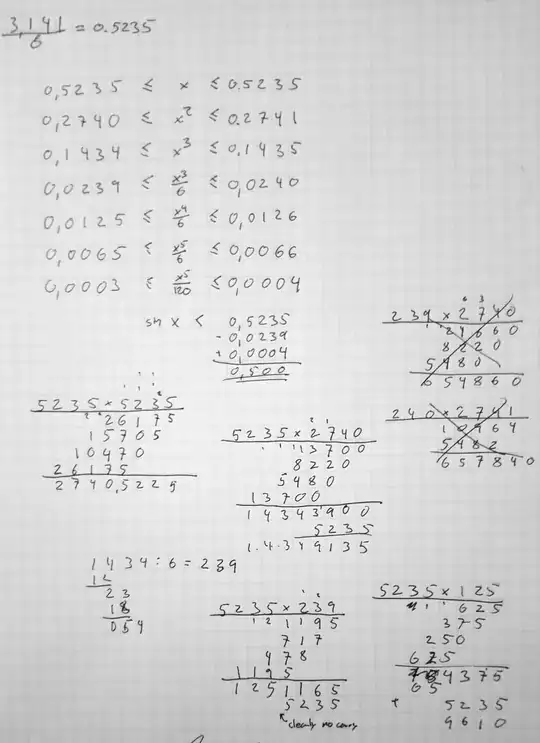 3,141/6 = 0.5235
0,5235 ≤ x ≤ 0.5235
0,2740 ≤ x² ≤ 0.2741
0,1434 ≤ x³ ≤ 0.1435
0,0239 ≤ x³/6 ≤ 0,0240
0,0125 ≤ x⁴/6 ≤ 0,0126
0,0065 ≤ x⁵/6 ≤ 0,0066
0,0003 ≤ x⁵/120 ≤ 0,0004
sin x < 0,5235
- 0,0239
+ 0,0004
0,500
239 × 2740
24660
8220
5480
654860
5235 × 5235
26175
15705
10470
26175
2740,5229
5235 × 2740
13700
8220
5480
13700
14343900
5235
1.4.349135
240 × 2741
10964
5482
657840
1434 : 6 = 239
12
23
18
054
5235 × 239
1195
717
478
1195
1251165
5235
clearly no carry
5235 × 125
625
375
250
625
4375
65
+ 5235
9610